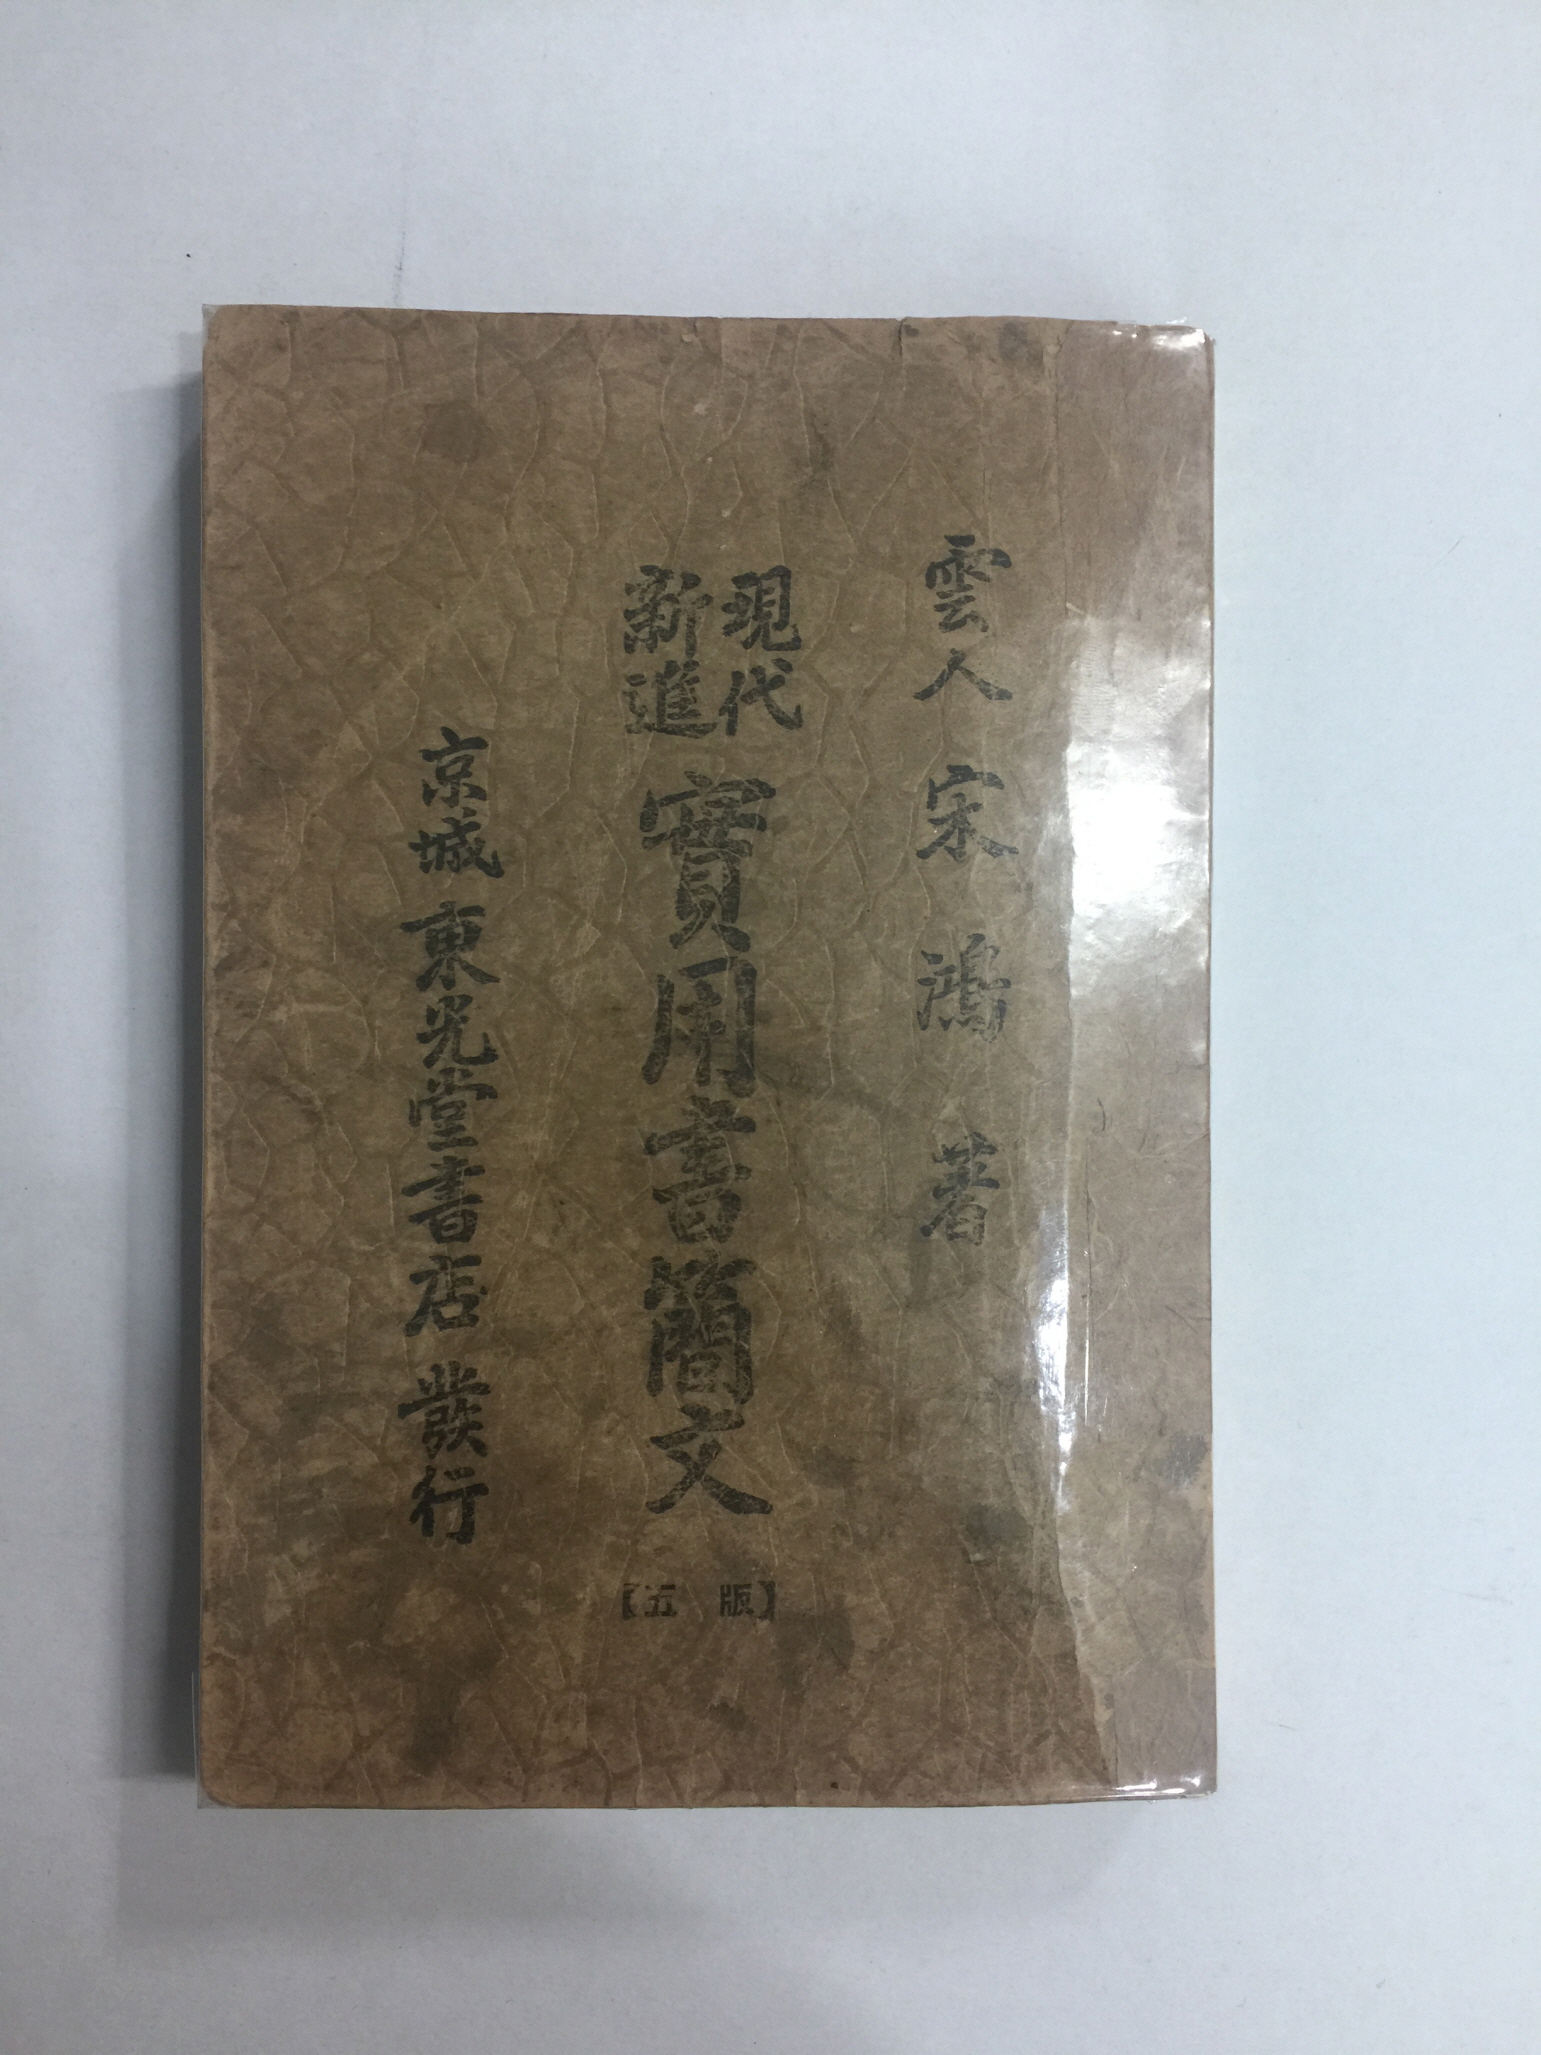 雲人 宋鴻 著
現代
新進
實用書簡文
【五版】
京城 東光堂書店 發行